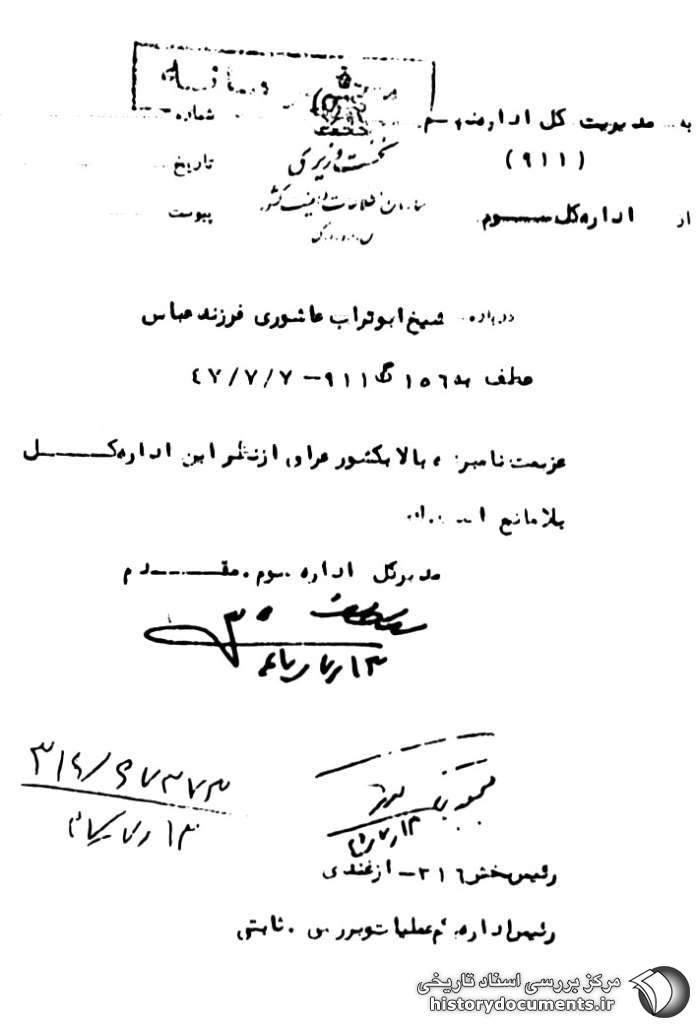 به مدیریت کل اداره نهم
شماره
(٩١١)
نخست وزیری
تاریخ
سازمان اطلاعات و امنیت کشور
از اداره کل سوم
پیوست
درباره شیخ ابوتراب عاشوری فرزند عباس
عطف به ١٥٦گ٩١١-٤٧/٧/٧
عزیمت نامبرده بالا بکشور عراق از نظر این اداره کل
بلامانع است
مدیرکل اداره سوم. مقدم
٣١٦/٤٧٣٧٣
رئیس بخش ٣١٦- ازغندی
رئیس اداره یکم عملیات و بررسی. ثابتی
مرکز بررسی اسناد تاریخی
historydocuments.ir